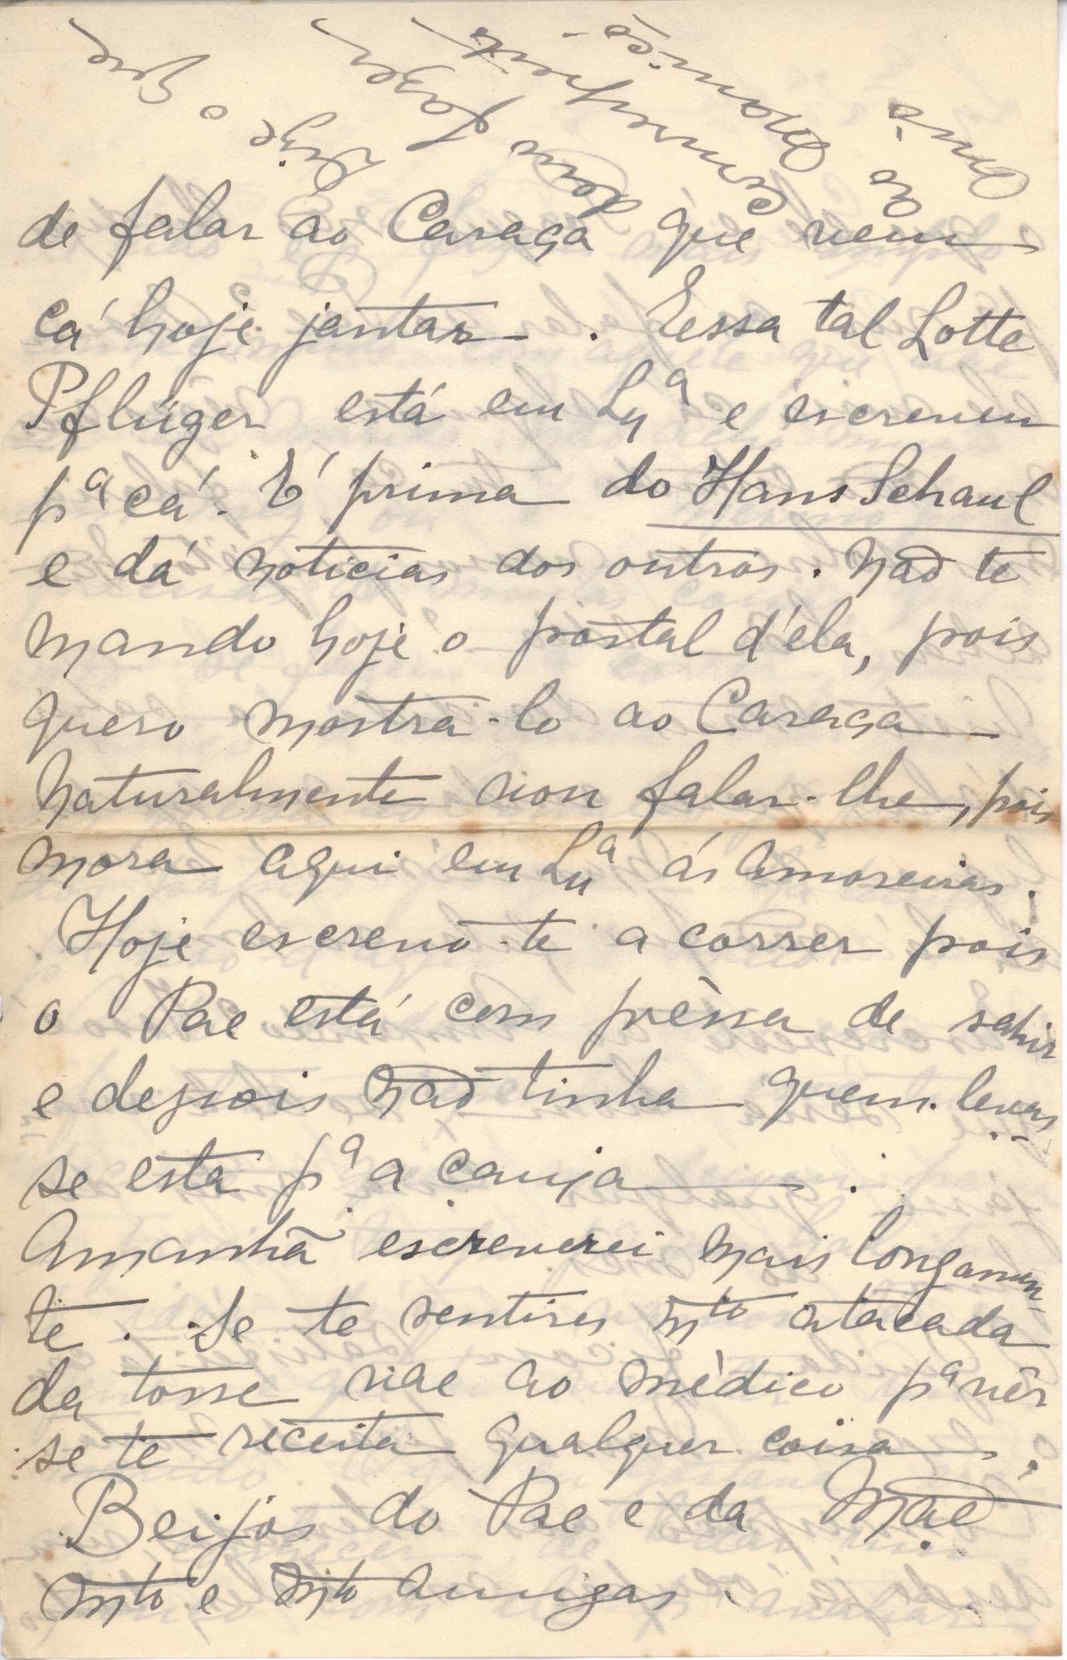 de falar ao Caraça que vem
cá hoje jantar. Essa tal Lotte
Pflüger está em Lxª e escreveu
pª cá. É prima do Hans Schaul
e dá noticias dos outros. Não te
mando hoje o postal d'éla, pois
quero mostra-lo ao Caraça
Naturalmente vou falar-lhe, pois
mora aqui em Lxª ás Amoreiras.
Hoje escrevo-te a correr pois
o Pae está com prêssa de sahir
e depois não tinha quem levas
se esta pª a caixa.
Amanhã escreverei mais longamen-
te. Se te sentires mto atacada
da tosse vae ao médico pª vêr
se te receita qualquer coisa.
Beijos do Pae e da Mãe
mto e mto amigos.
Diz o Pae